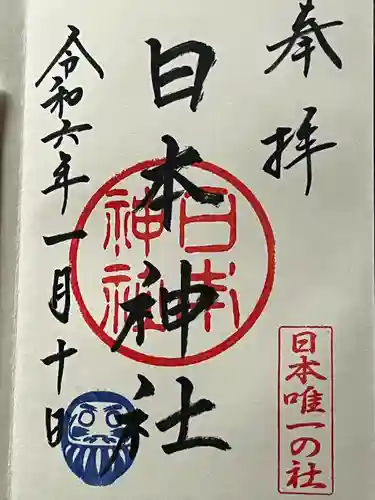 奉拝
日本唯一の社
日本神社
日本神社
令和六年一月十日